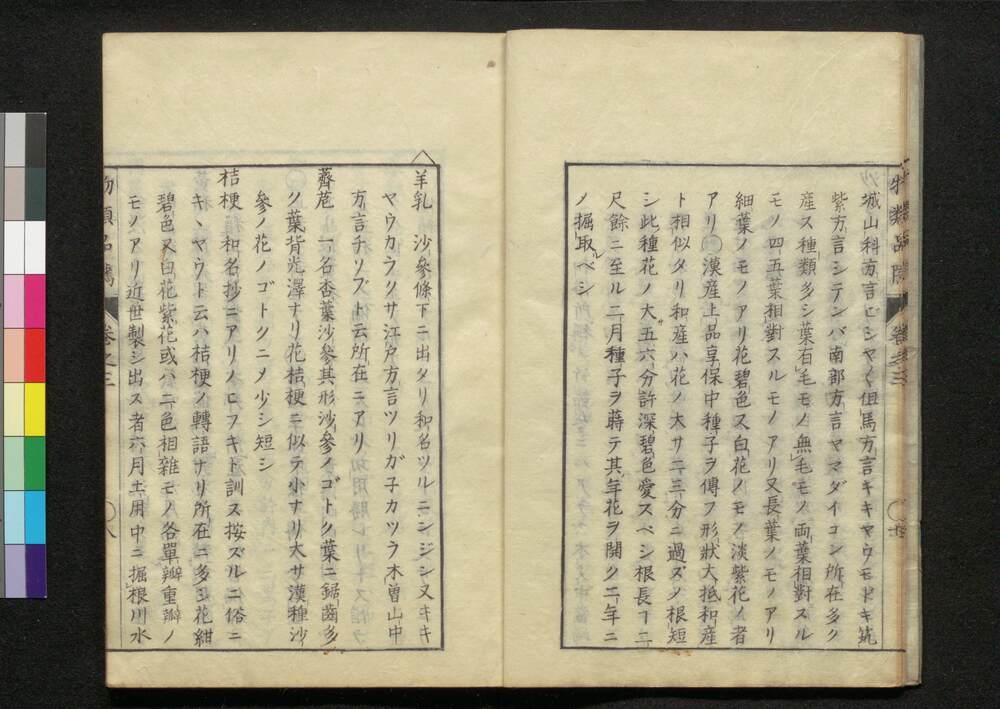 城山科方言ビシヤ〱但馬方言キキヤウモドキ筑
紫方言シテンバ南部方言ヤマダイコン所在多ク
産ス種類多シ葉有毛モノ無毛モノ両葉相對スル
モノ四五葉相對スルモノアリ又長葉ノモノアリ
細葉ノモノアリ花碧色ス白花ノモノ淡紫花ノ者
アリ○漢産上品享保中種子ヲ傳フ形狀大抵和産
ト相似タリ和産ハ花ノ大サ二三分ニ過ズ〆根短
シ此種花ノ大サ五六分許深碧色愛スベシ根長フ二
尺餘ニ至ル二月種子ヲ蒔テ其年花ヲ開ク二年ニ
ノ掘取ベシ
羊乳 沙參條下ニ出タリ和名ツルニンジン又キキ
ヤウカラクサ江戸方言ツリガ子カツラ木曽山中
方言チソブト云所在ニアリ
薺苨 一名杏葉沙參其形沙參ノゴトク葉ニ鋸齒多
ク葉背光澤ナリ花桔梗ニ似テ小ナリ大サ漢種沙
參ノ花ノゴトクニ〆少シ短シ
桔梗 和名抄ニアリノヒフキト訓ス按ズルニ俗ニ
キヽヤウト云ハ桔梗ノ轉語ナリ所在ニ多シ花紺
碧色又白花紫花或ハ二色相雜モノ各單瓣重瓣ノ
モノアリ近世製シ出ス者六月土用中ニ掘根川水
物類品隲 卷之三 ○八